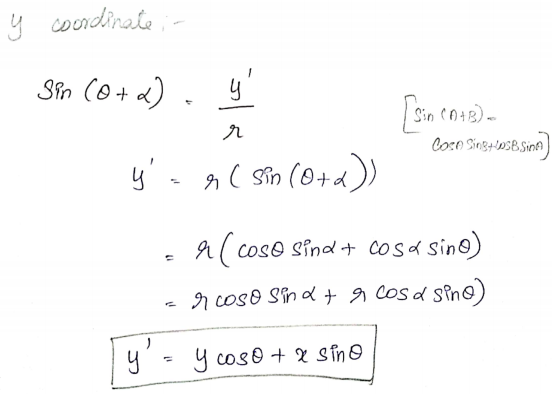 y coordinate :-
Sin (θ + α) = y' / r
[Sin (A+B) =
CosA SinB + cosB SinA]
y' = r ( Sin (θ + α))
= r ( cosθ sinα + cosα sinθ)
= r cosθ Sinα + r cosα sinθ)
y' = y cosθ + x sinθ